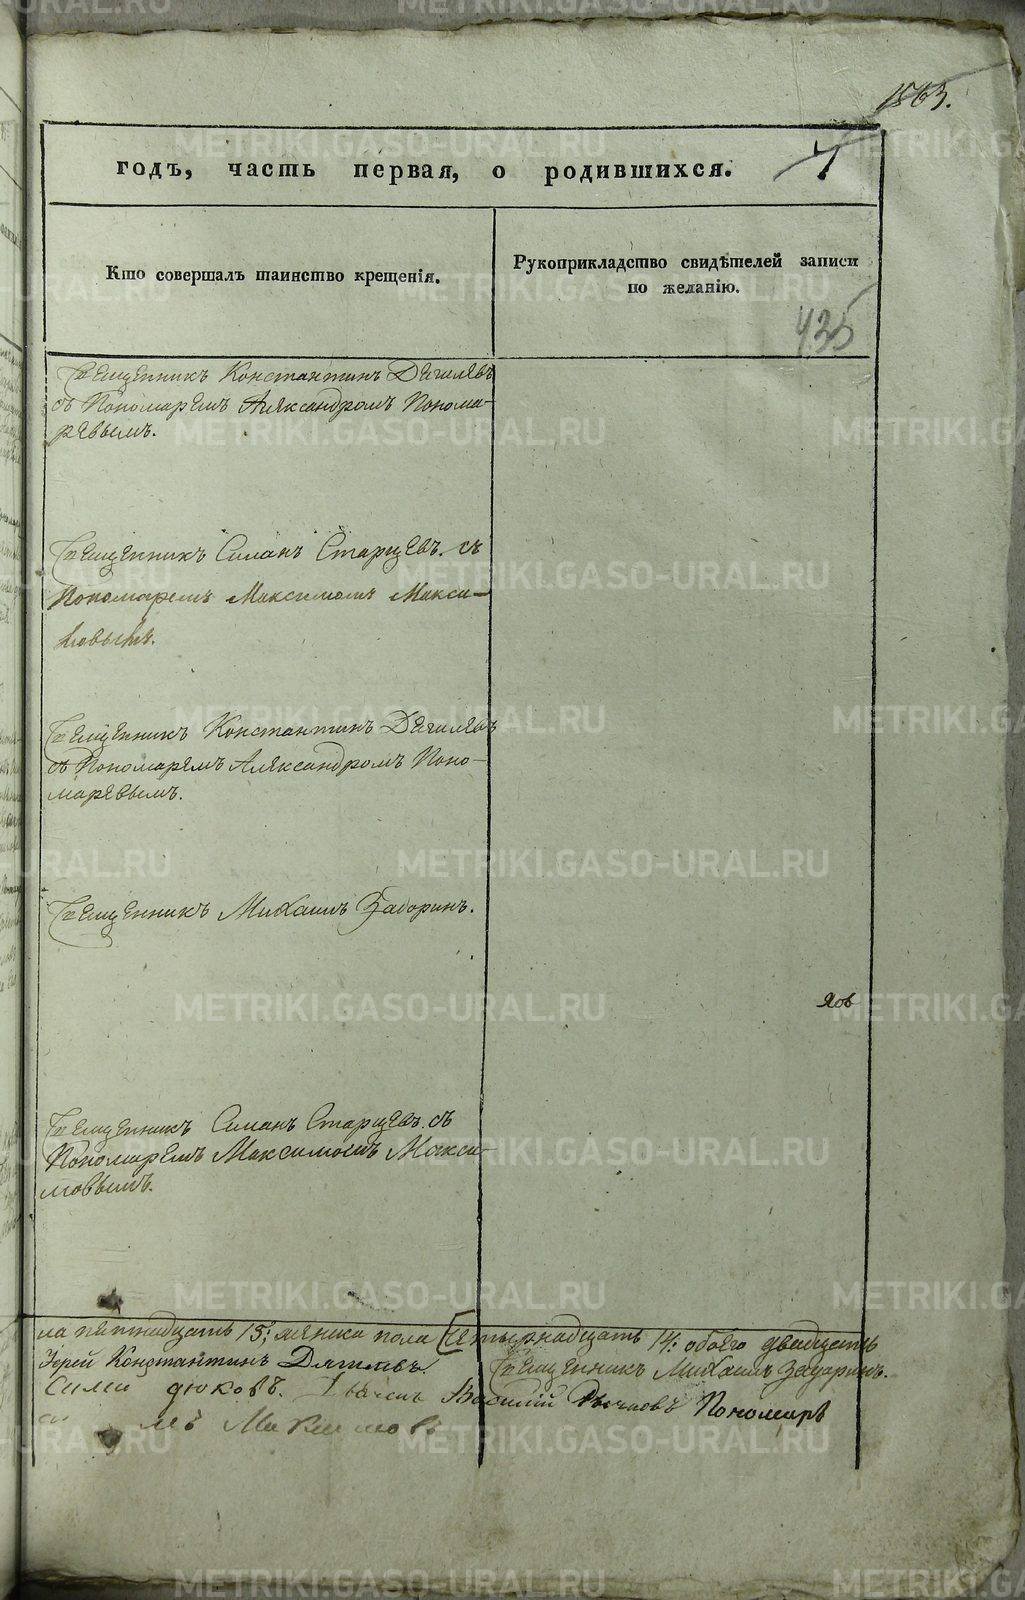 1563.
годъ, часть первая, о родившихся. 7
Кто совершалъ таинство крещенія.
Рукоприкладство свидѣтелей записи
по желанію.
435
Священникъ Константинъ Дягилевъ
съ Пономаремъ Александромъ Понома-
ревымъ.
Священникъ Симонъ Старцевъ. съ
Пономаремъ Максимомъ Макси-
мовымъ.
Священникъ Константинъ Дягилевъ
съ Пономаремъ Александромъ Поно-
маревымъ.
Священникъ Михаилъ Заборинъ.
Яов
Священникъ Симонъ Старцевъ. съ
Пономаремъ Максимомъ Макси-
мовымъ.
ла пятнадцать 15; женска пола четырнадцать 14: обоего двадцать
Іерей Константинъ Священникъ Михаилъ
Василій Пономарь
METRIKI.GASO-URAL.RU